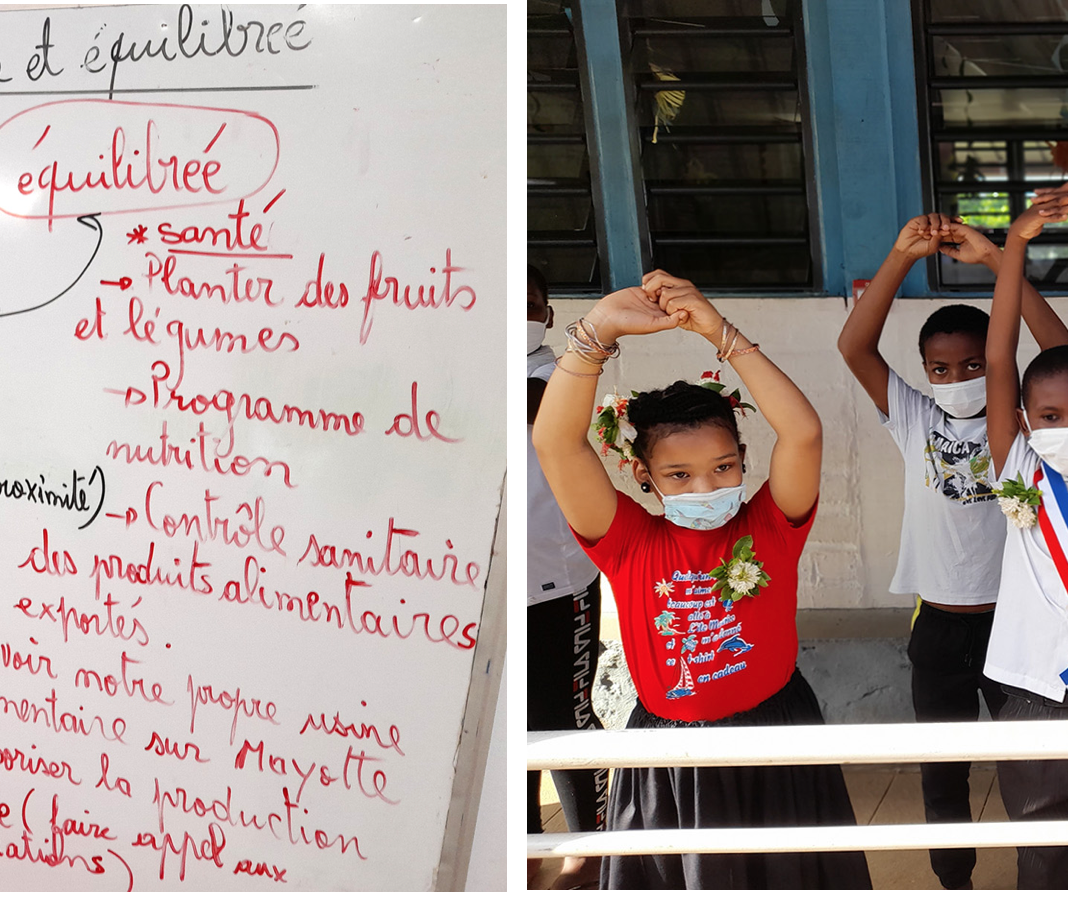 et équilibrée
équilibrée
* santé
→ Planter des fruits
et légumes
→ Programme de
nutrition
roximité)
→ Contrôle sanitaire
des produits alimentaires
exportés.
voir notre propre usine
mentaire sur Mayotte
oriser la production
e (faire appel aux
ations)
Quelqu'un
m'aime
beaucoup est
allé à
L'Ile Maurice
et m'a donné
ce t-shirt
en cadeau